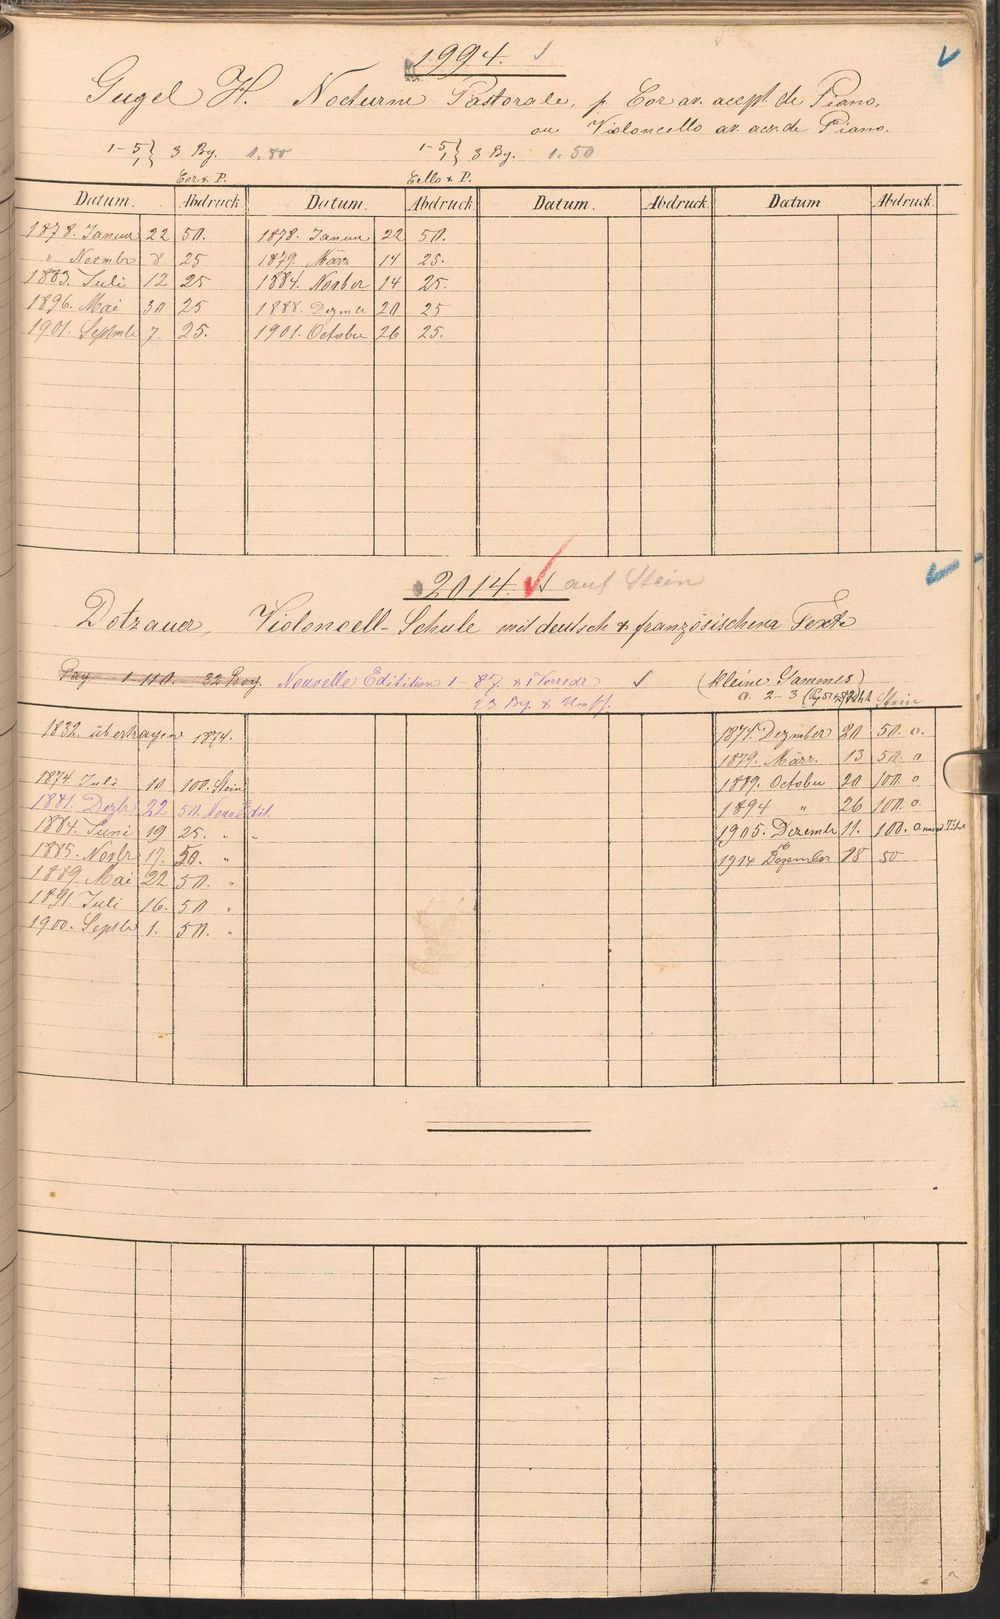 1994.
Gugel H. Nocturne Pastorale, p. Cor av. accpt. de Piano,
ou Violoncello av. acc. de Piano.
1-5 } 3 Bg. 1.80 1-5 } 3 Bg. 1.50
1 1
Cor & P. Cello & P.
Datum. Abdruck Datum. Abdruck Datum. Abdruck Datum Abdruck
1878. Januar 22 50. 1878. Januar 22 50.
" Novmbr 8 25 1879. März 14 25.
1883. Juli 12 25 1884. Novbor 14 25.
1896. Mai 30 25 1888. Dezmer 20 25
1901. Septmbr 7. 25. 1901. October 26 25.
2014. auf Stein
Dotzauer, Violoncell-Schule mit deutsch & französischem Texte
Pag 1-110. 32 Bog. Nouvelle Edition 1-87. & 1 Vorrede (kleine Gammes)
23 Bg. & Umschl. a. 2-3 Stein
1832. übertragen 1874. 1874. Dezember 20 50. a.
1879. März 13 50. a
1874. Juli 10 100. Stein 1889. October 20 100. a
1881. Dezbr 22 50. Nouv Edit. 1894 " 26 100. a.
1884. Juni 19 25. " " 1905. Dezembr 11. 100. a
1885. Novbr 17. 50. " 1914 Dezember 18 50
1889. Mai 22 50. "
1891. Juli 16. 50 "
1900. Septbr 1. 50. "